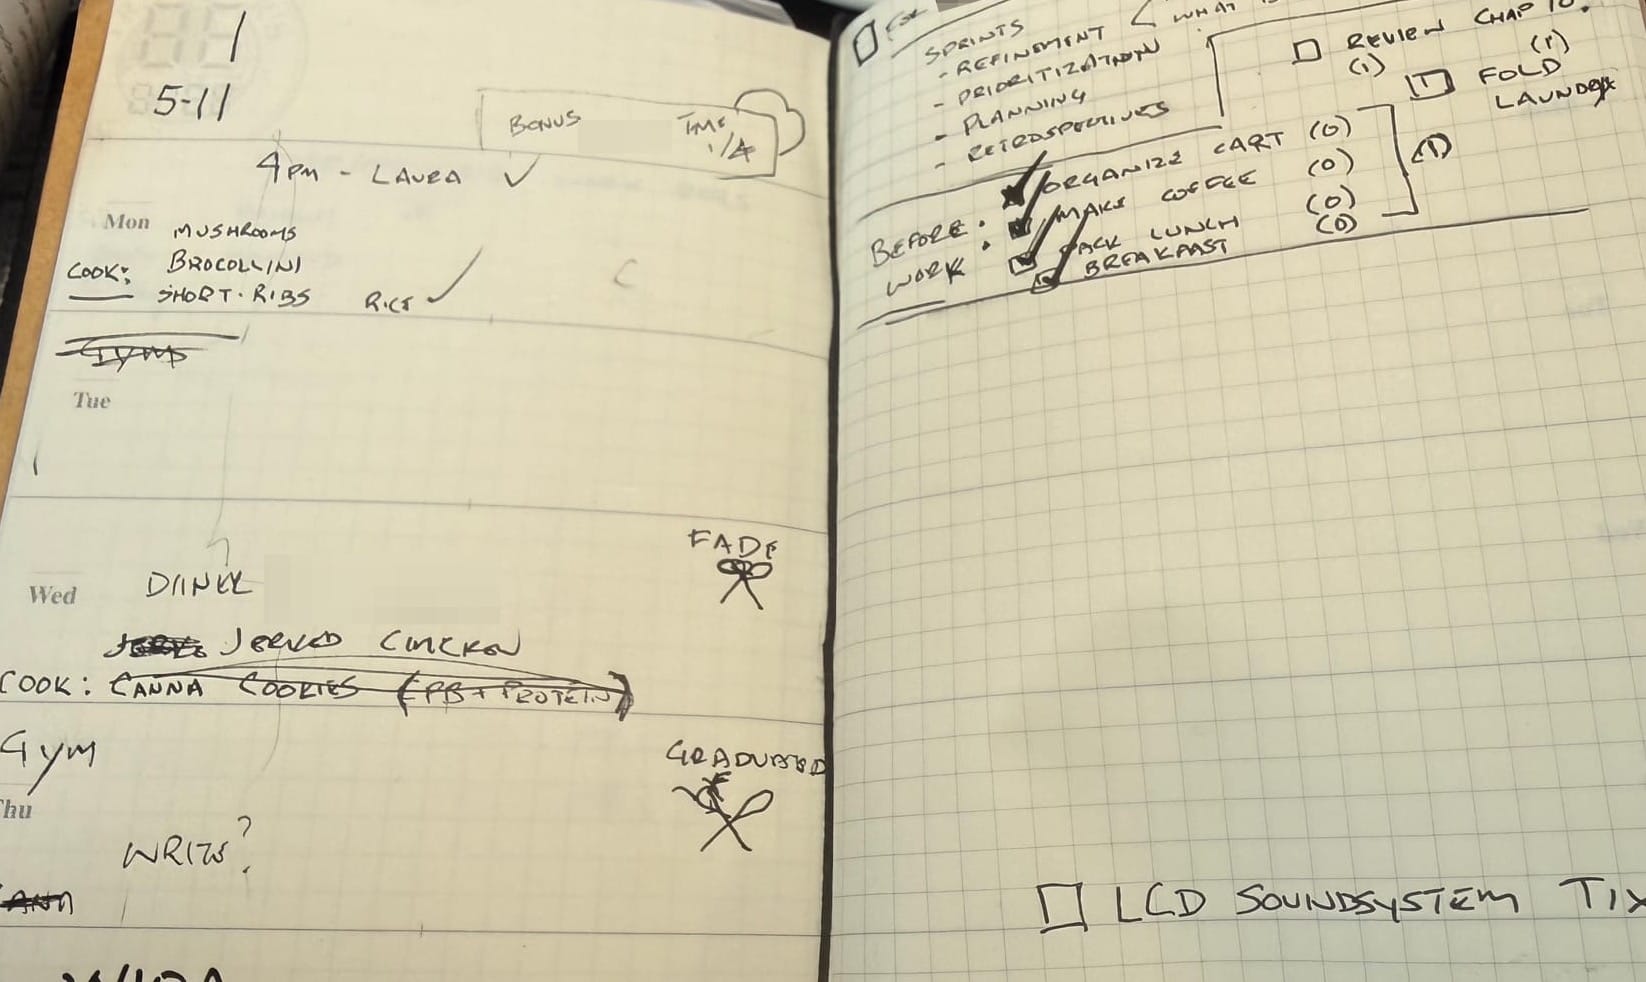 1
5-11
BONUS
TIME
1/4
4PM - LAURA ✓
Mon
MUSHROOMS
COOK: BROCOLLINI
SHORT-RIBS RICE ✓
C
GYM
Tue
FADE
Wed
JERKED CHICKEN
COOK: CANNA COOKIES (PB + PROTEIN)
GYM
GRADUATED
Thu
WRITE?
SPRINTS
- REFINEMENT < WHAT
- PRIORITIZATION
- PLANNING
- RETROSPECTIVES
REVIEW CHAP 10.
(1)
(1)
FOLD
LAUNDRY
BEFORE: ORGANIZE CART (0)
WORK MAKE COFFEE (0)
PACK LUNCH (0)
BREAKFAST (0)
(1)
LCD SOUNDSYSTEM TIX